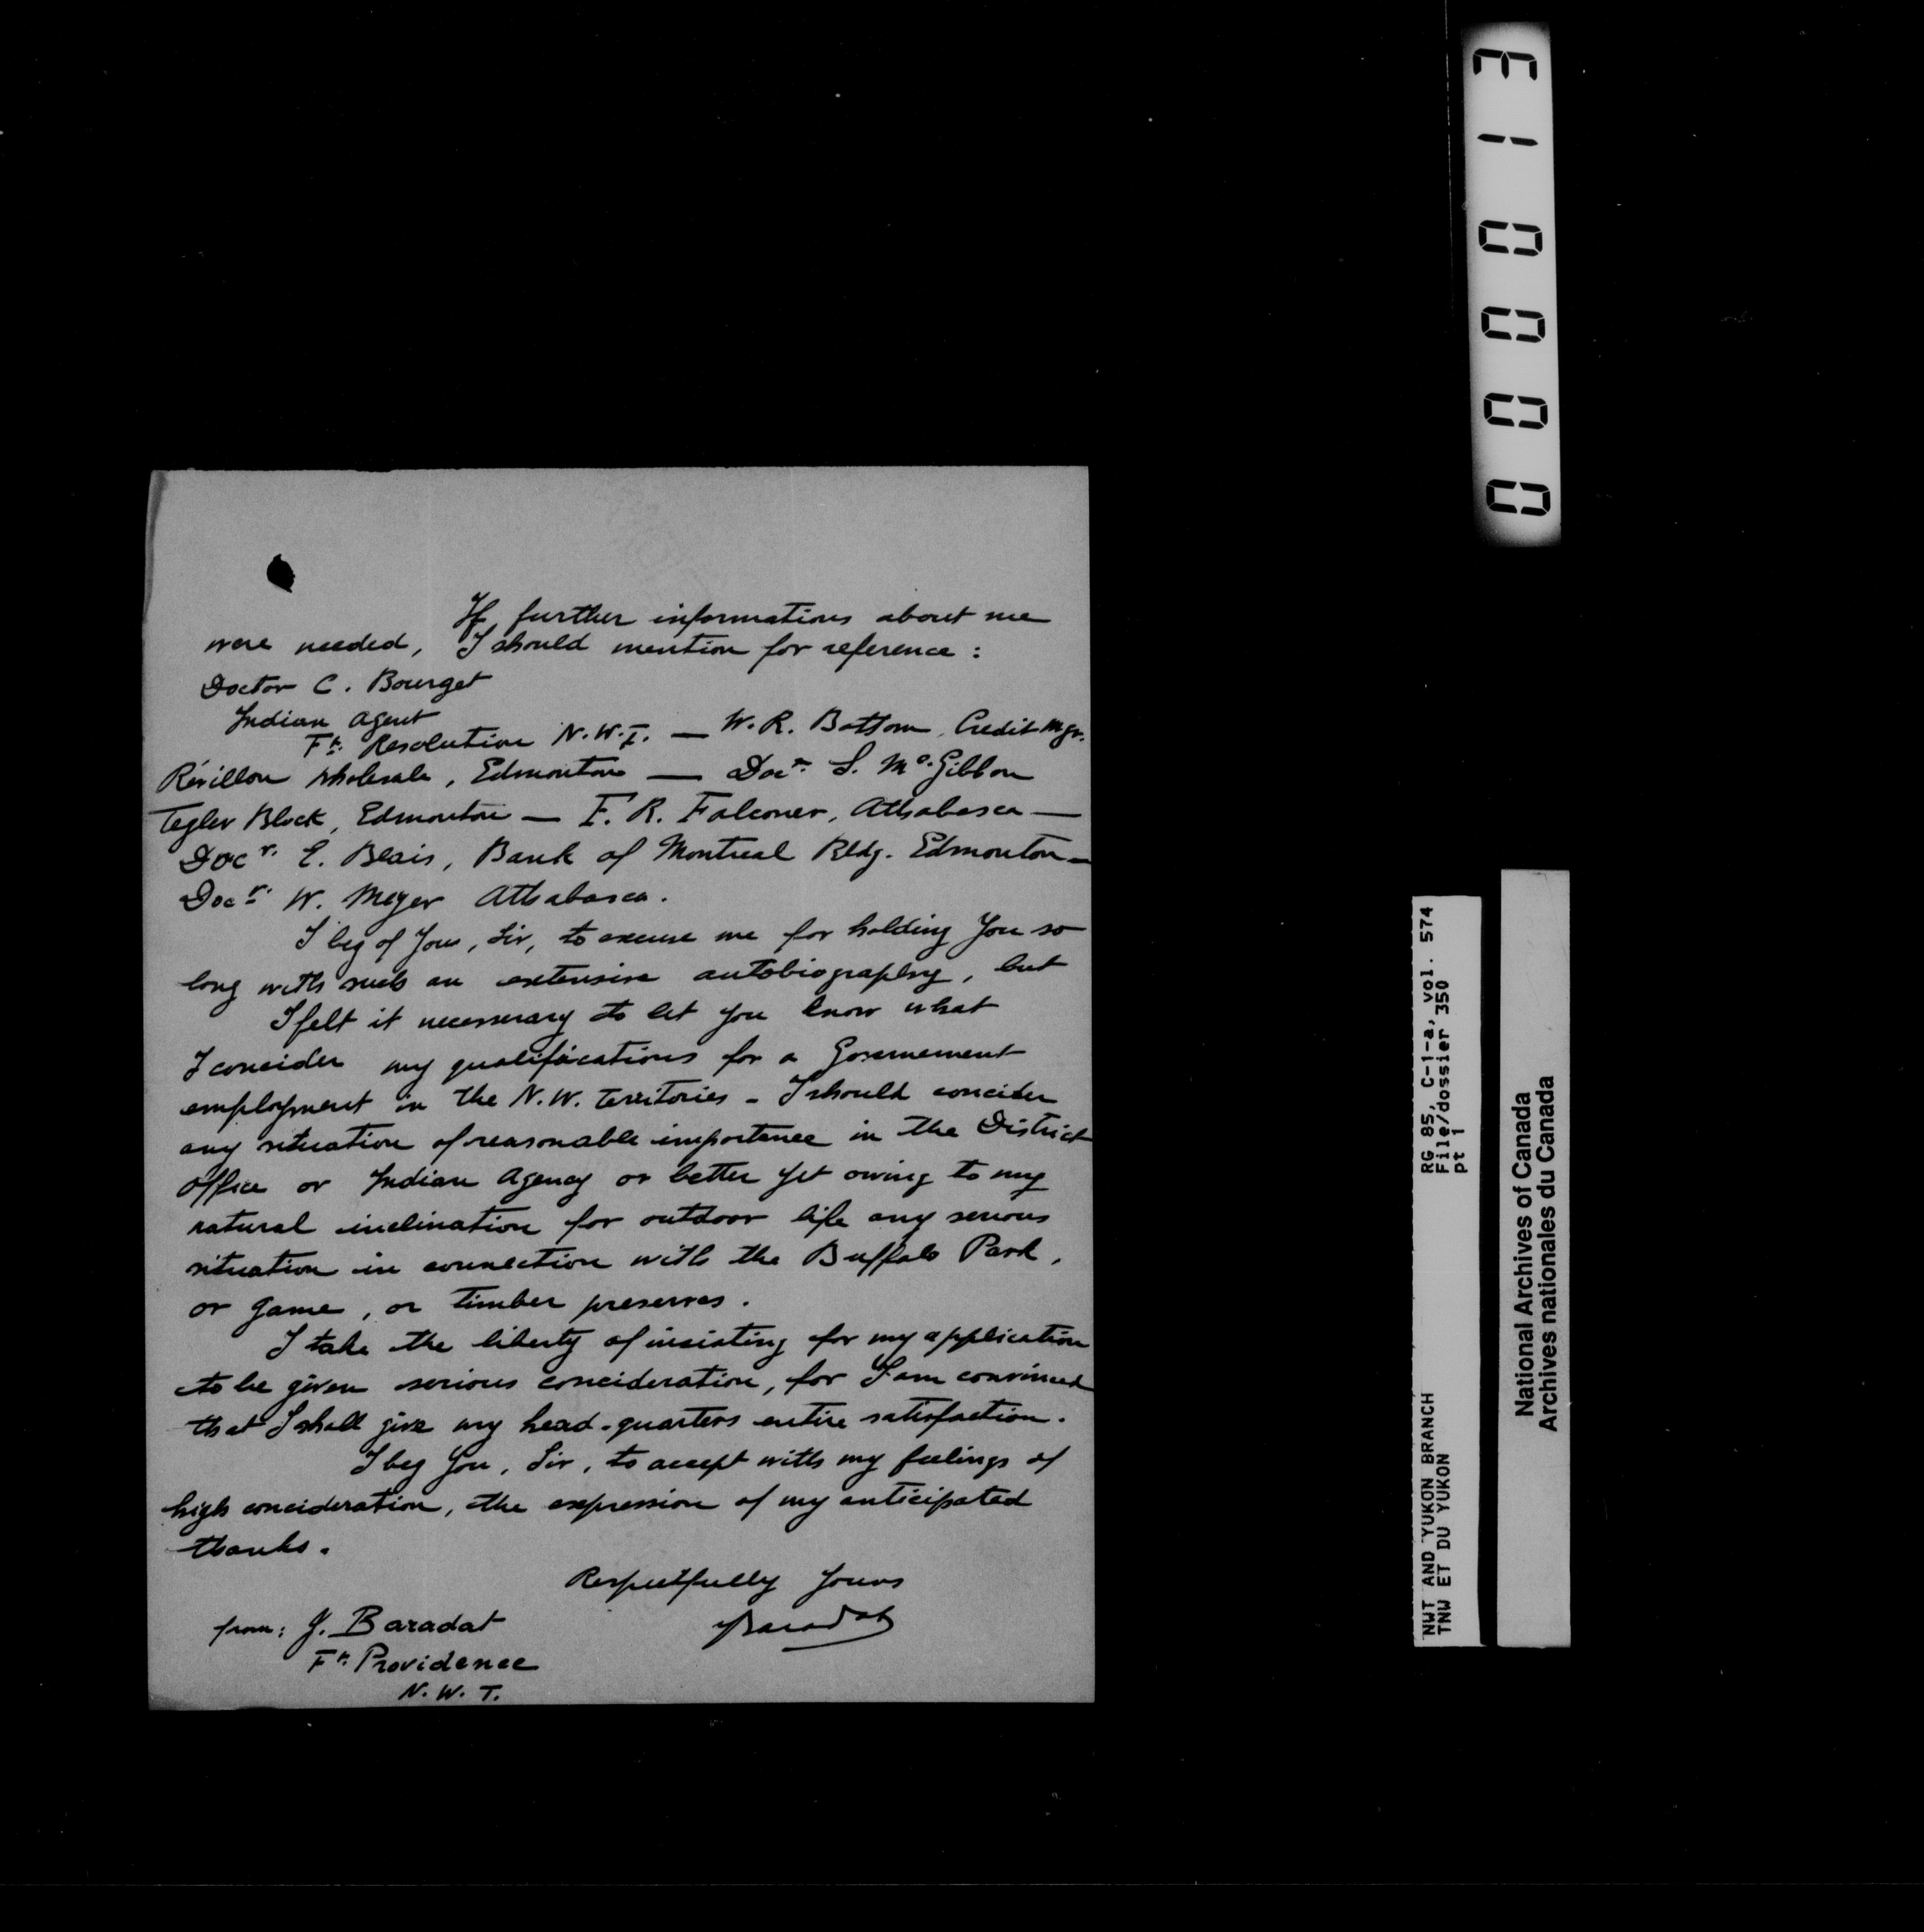 If further informations about me
were needed, I should mention for reference :
Doctor C. Bourget
Indian Agent
Ft. Resolution N.W.T. — W. R. Bottom, Credit Mgr.
Révillon Wholesale, Edmonton — Docr. S. Mc. Gibbon
Tegler Block, Edmonton — F. R. Falconer, Athabasca —
Docr. E. Blais, Bank of Montreal Bldg. Edmonton —
Docr. W. Meyer Athabasca.
I beg of You, Sir, to excuse me for holding You so
long with such an extensive autobiography, but
I felt it necessary to let you know what
I concider my qualifications for a Governement
employment in the N.W. Territories - I should concider
any situation of reasonable importance in the District
Office or Indian Agency or better yet owing to my
natural inclination for outdoor life any serious
situation in connection with the Buffalo Park,
or game, or timber preserves.
I take the liberty of insisting for my application
to be given serious concideration, for I am convinced
that I shall give my head-quarters entire satisfaction.
I beg You, Sir, to accept with my feelings of
high concideration, the expression of my anticipated
thanks.
Respectfully Yours
Baradat
from: J. Baradat
Ft. Providence
N. W. T.
000013
RG 85, C-1-a, vol. 574
File/dossier 350
pt 1
NWT AND YUKON BRANCH
TNW ET DU YUKON
National Archives of Canada
Archives nationales du Canada